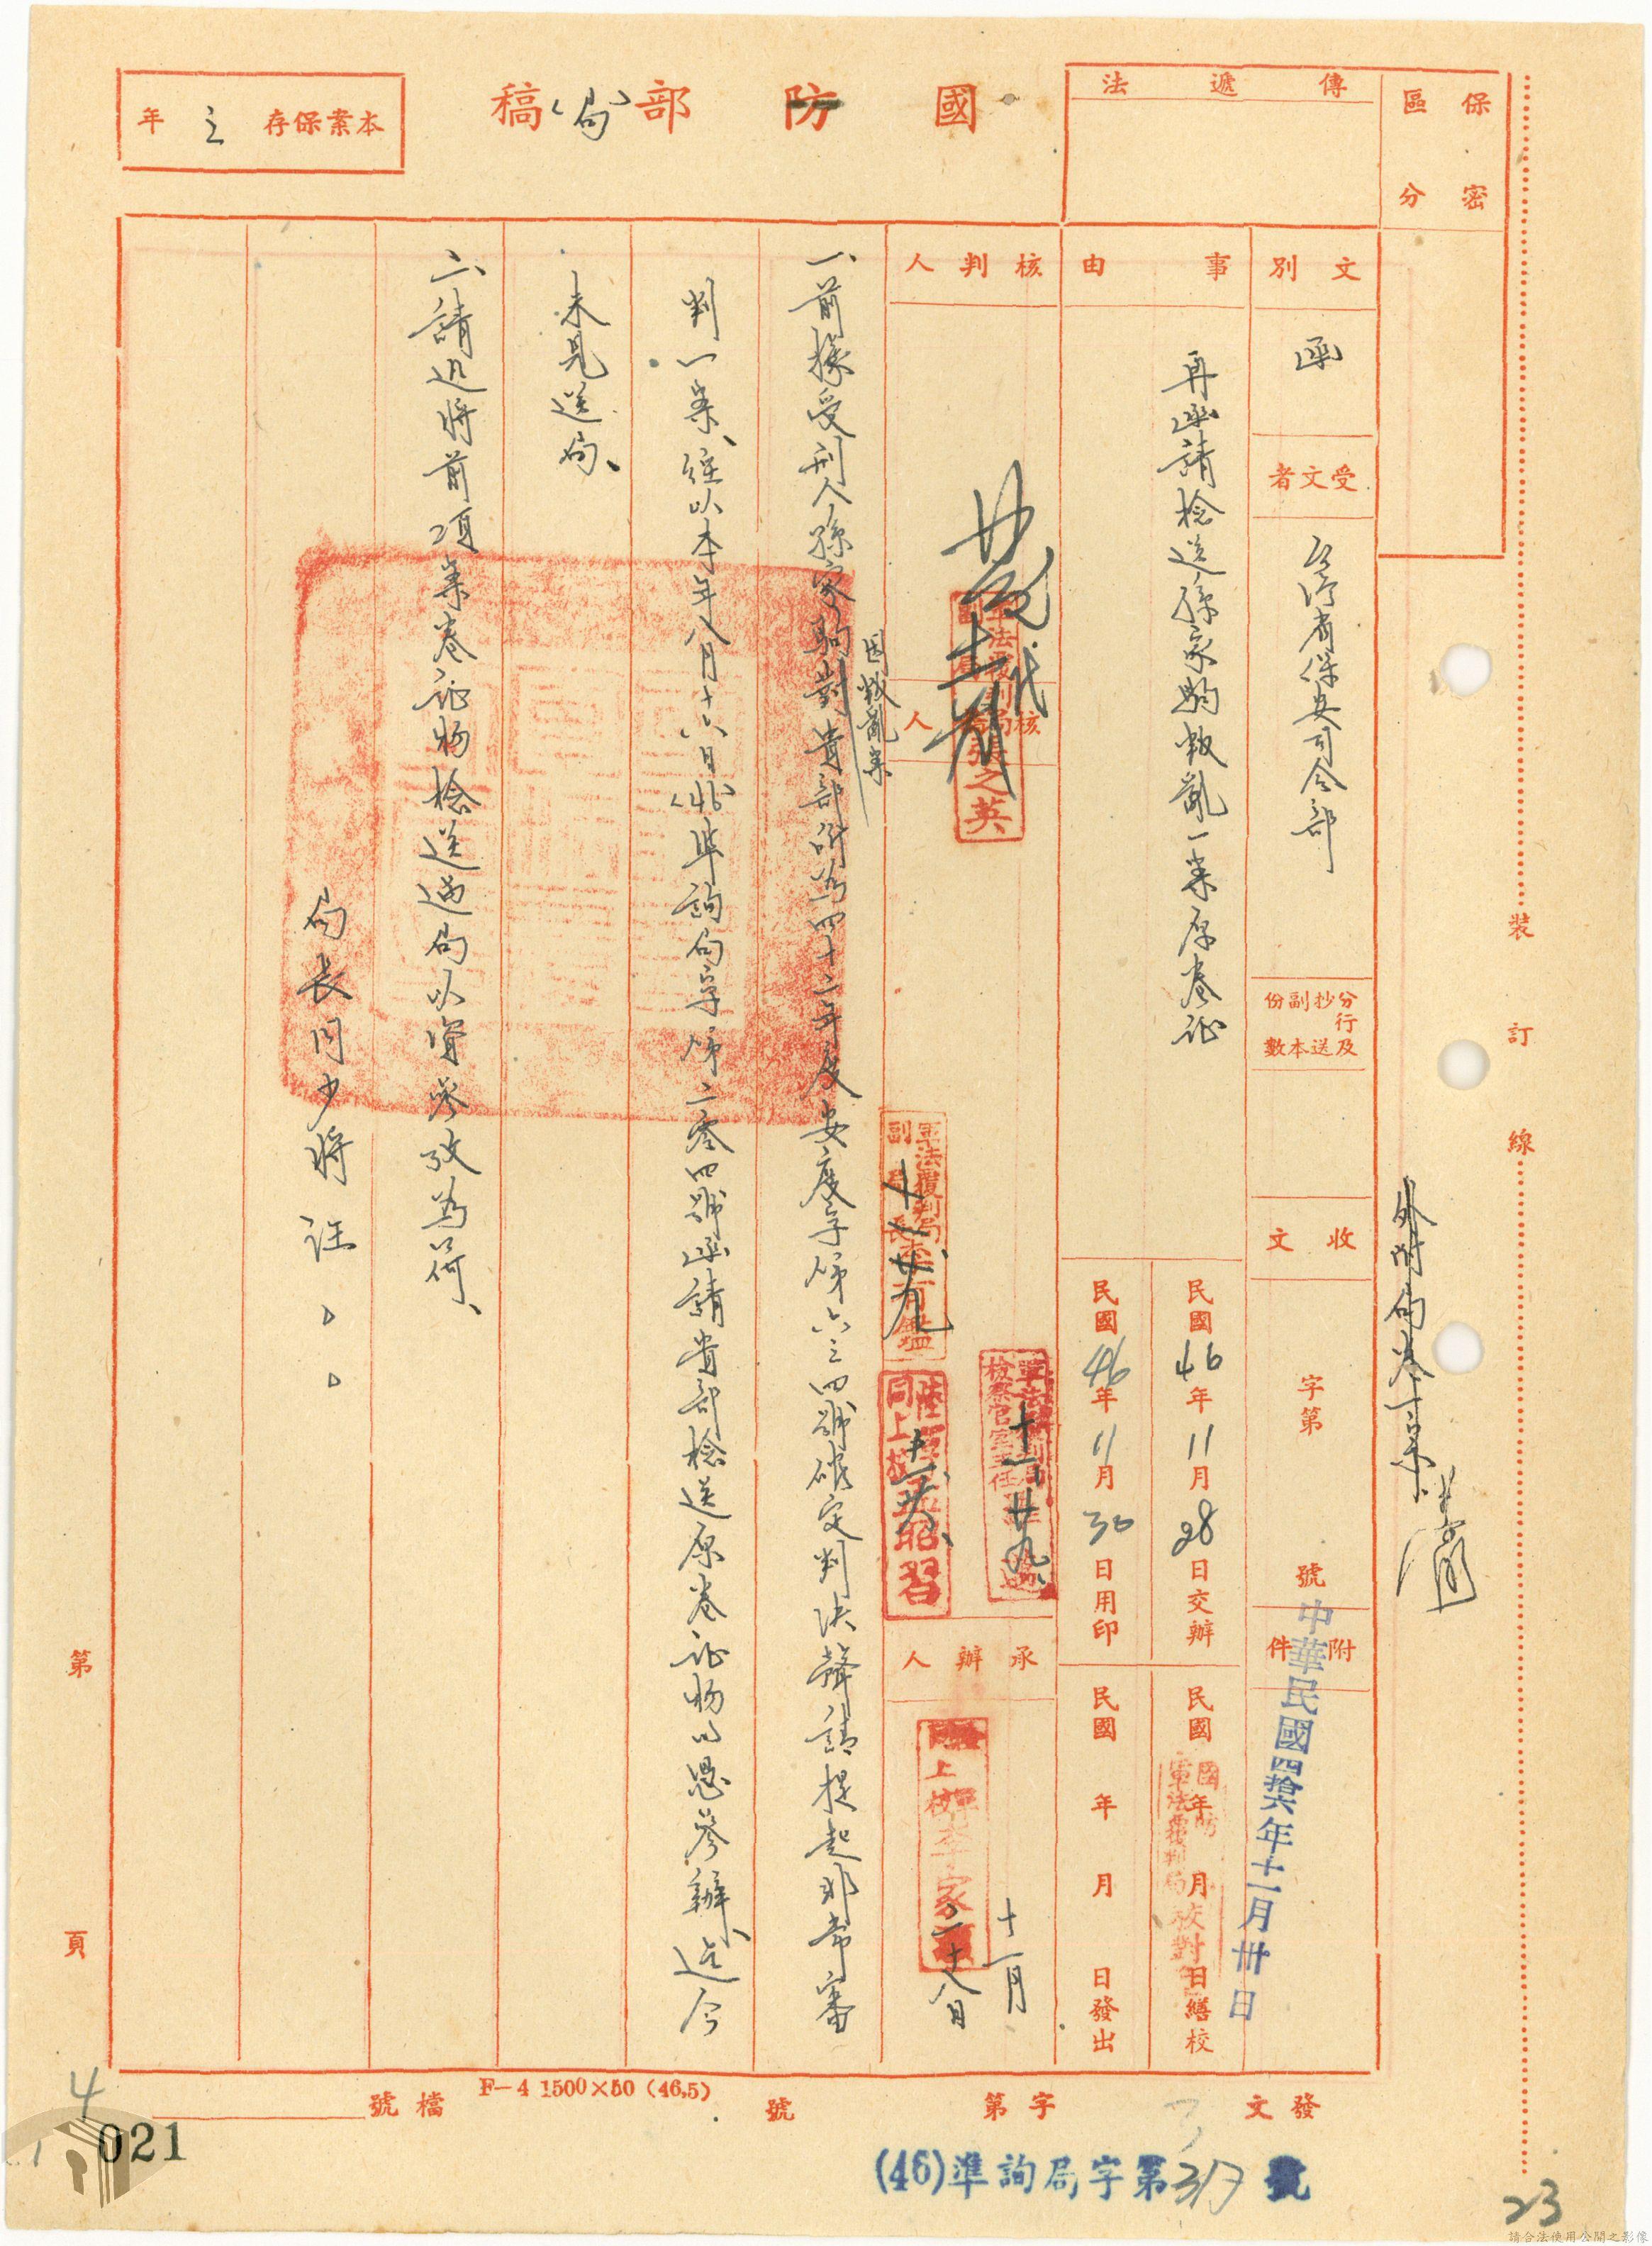 保密
區分
傳遞法
國防部(局)稿
本案保存三年
文別
函
受文者
台灣省保安司令部
分行及抄送副本份數
收文
字第
號
附件
事由
再函請檢送孫家駒叛亂一案原卷證
民國46年11月28日交辦
民國46年11月30日用印
民國 年 月 日繕校
民國 年 月 日發出
中華民國四拾六年十一月卅日
外附局卷一宗
核判人
核
人
軍法覆判局
張之英
軍法覆判局
副局長
十一、廿九
檢察官室主任
十一、廿九
同上校
昭習
承辦人
上校
李家
十一月
二十八日
校對
一、前據受刑人孫家駒因叛亂案對貴部所為四十二年度安度字第六三四號確定判決聲請提起非常審
判一案、經以本年八月十六日(46)準詢局字第二零四號函請貴部檢送原卷証物以憑參辦、迄今
未見送局、
二、請迅將前項案卷証物檢送過局以資參攷為荷、
局長周少將 汪。。
裝訂線
第 頁
發文
字第
號
檔號
F-4 1500×50 (46,5)
(46)準詢局字第317號
4
021
23
請合法使用公開之影像